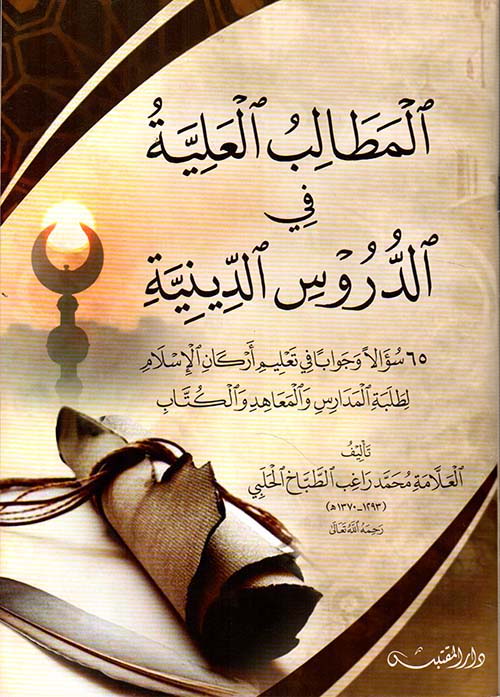 ٱلْمَطَالِبُ ٱلْعَلِيَّةُ
فِي
ٱلدُّرُوْسِ ٱلدِّينِيَّةِ
٦٥ سُؤَالاً وَجَوَابًا فِي تَعْلِيمِ أَرْكَانِ ٱلْإِسْلَامِ
لِطَلَبَةِ ٱلْمَدَارِسِ وَٱلْمَعَاهِدِ وَٱلْكُتَّابِ
تَأْلِيفُ
ٱلْعَلَّامَةِ مُحَمَّد رَاغِب ٱلطَّبَّاخ ٱلْحَلَبِي
(١٢٩٣-١٣٧٠هـ)
رَحِمَهُ ٱللَّهُ تَعَالَى
دار المقتبس